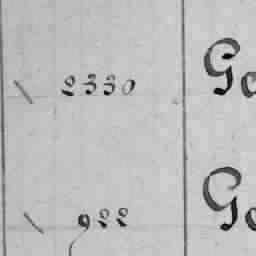 \ 2330 Go
\ 922 Go